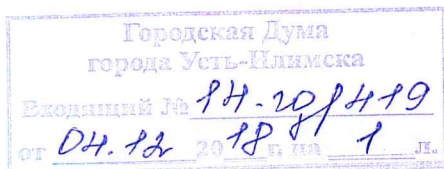 Городская Дума
города Усть-Илимска
Входящий № 14-го/419
от 04.12 2018 г. на 1 л.